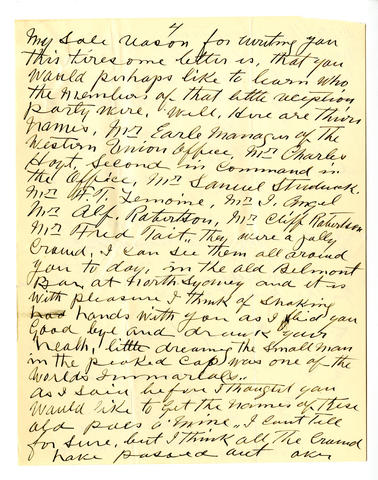 4
My sole reason for writing you
this tiresome letter is, that you
would perhaps like to learn who
the members of that little reception
party were, Well, Here are their
names, Mr Earle Manager of the
Western Union Office, Mr Charles
Hoyt, Second in Command in
the Office, Mr Samuel
Mr H. T. Lemoine, Mr J. Angel
Mr Alf. Robertson, Mr Cliff Robertson
Mr Fred Tait, they were a jolly
Crowd, I can see them all around
you to day, in the old Belmont
Bar, at North Sydney and it is
with pleasure I think of shaking
had hands with you as I bid you
Good bye and drank your
health, little dreaming the Small man
in the peaked Cap was one of the
Worlds Immortals.
as I said before I thought you
would like to get the names of these
old pals o' mine, I can't tell
for sure, but I think all the Crowd
have passed out